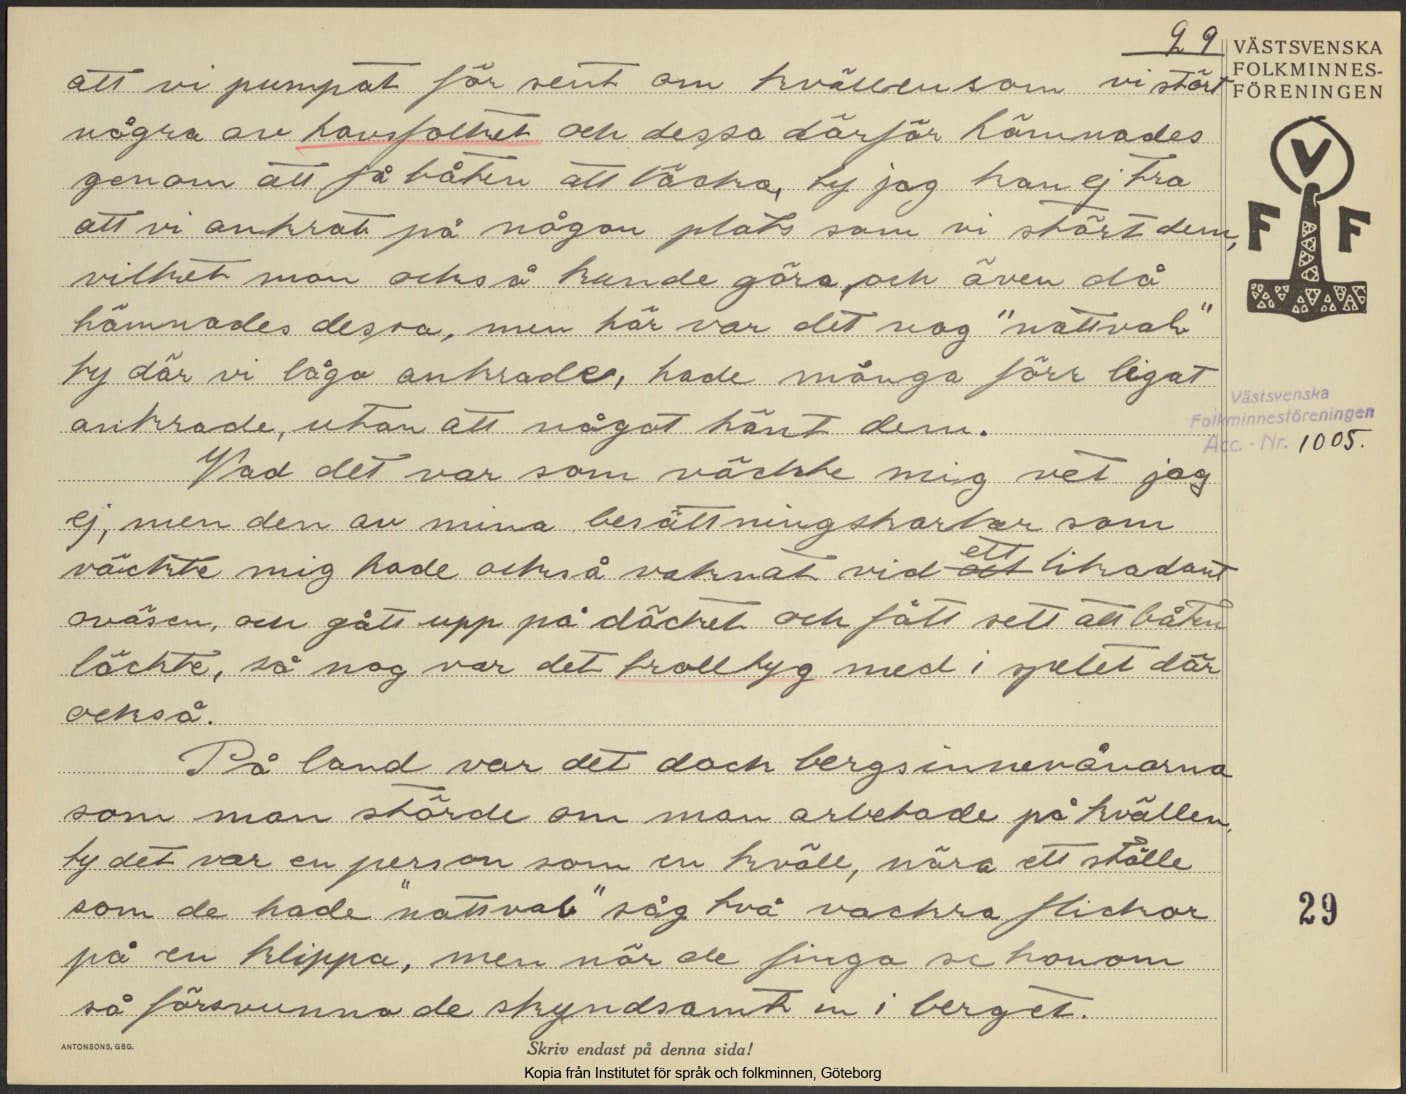 29
VÄSTSVENSKA
FOLKMINNES-
FÖRENINGEN
att vi pumpat för sent om kvällen som vi stört
några av havsfolket och dessa därför hämnades
genom att få båten att läcka, ty jag kan ej tro
att vi ankrat på någon plats som vi stört dem,
vilket man också kunde göra, och även då
hämnades dessa, men här var det nog "nattvak"
ty där vi lågo ankrade, hade många förr legat
ankrade, utan att något hänt dem.
Vad det var som väckte mig vet jag
ej, men den av mina besättningskarlar som
väckte mig hade också vaknat vid ett likadant
oväsen, och gått upp på däcket och fått sett att båten
läckte, så nog var det trolltyg med i spelet där
också.
På land var det dock bergsinnevånarna
som man störde om man arbetade på kvällen,
ty det var en person som en kväll, nära ett ställe
som de hade "nattvak" såg två vackra flickor
på en klippa, men när de finga se honom
så försvunno de skyndsamt in i berget.
V
F F
Västsvenska
Folkminnesföreningen
Acc. - Nr. 1005.
29
ANTONSONS, GBG.
Skriv endast på denna sida!
Kopia från Institutet för språk och folkminnen, Göteborg